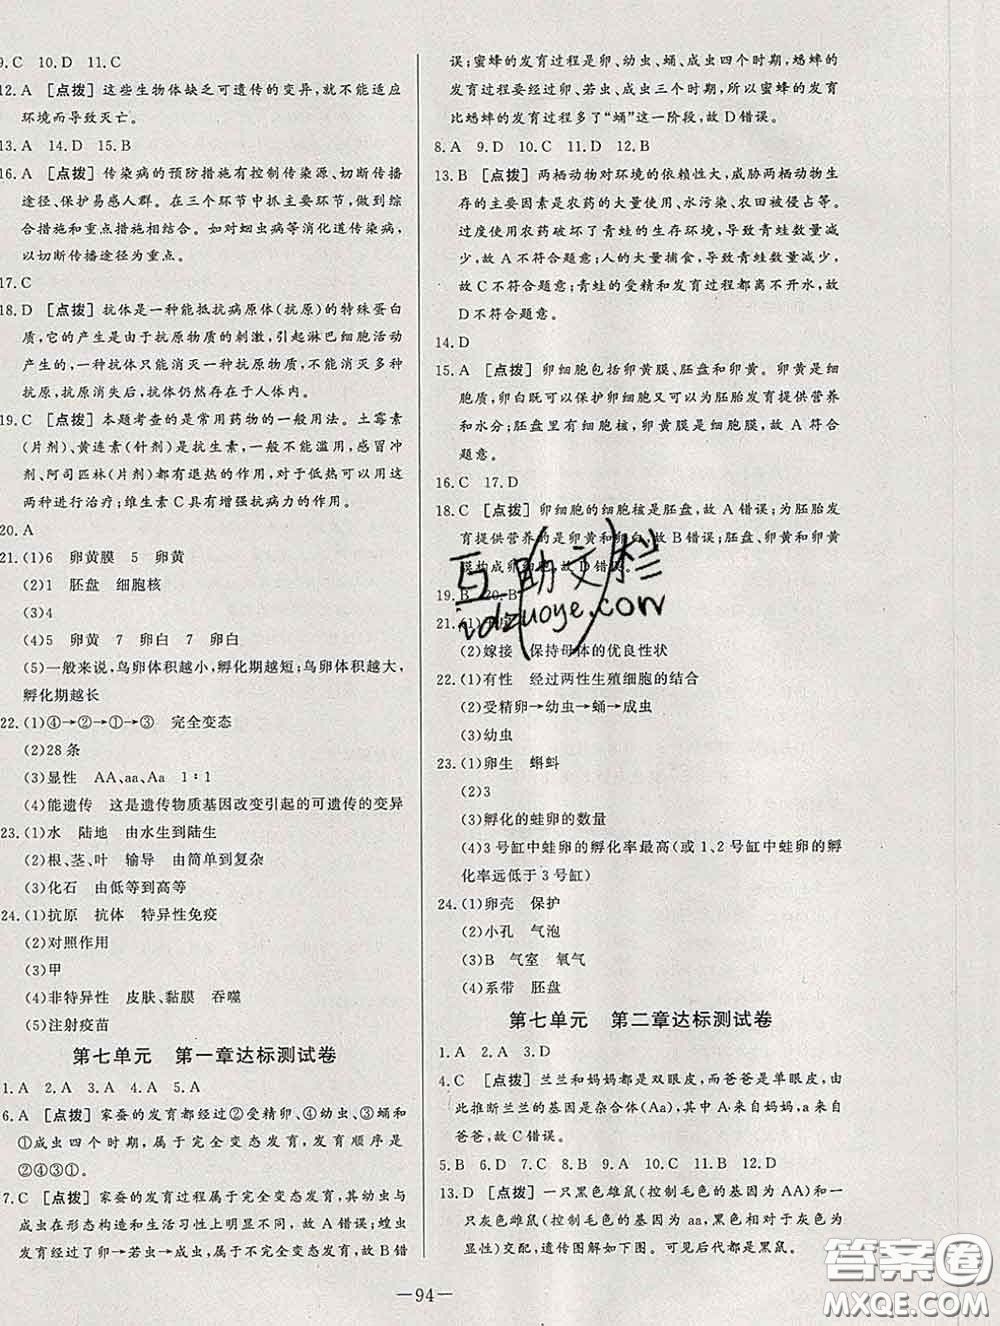 9.C 10.D 11.C
12.A [点拨] 这些生物体缺乏可遗传的变异,就不能适应
环境而导致灭亡。
13.A 14.D 15.B
16.A [点拨] 传染病的预防措施有控制传染源、切断传播
途径、保护易感人群。在三个环节中抓主要环节,做到综
合措施和重点措施相结合。如对蛔虫病等消化道传染病,
以切断传播途径为重点。
17.C
18.D [点拨] 抗体是一种能抵抗病原体(抗原)的特殊蛋白
质,它的产生是由于抗原物质的刺激,引起淋巴细胞活动
产生的,一种抗体只能消灭一种抗原物质,不能消灭多种
抗原,抗原消失后,抗体仍然存在于人体内。
19.C [点拨] 本题考查的是常用药物的一般用法。土霉素
(片剂)、黄连素(针剂)是抗生素,一般不能滥用,感冒冲
剂、阿司匹林(片剂)都有退热的作用,对于低热可以用这
两种进行治疗;维生素C具有增强抗病力的作用。
20.A
21.(1)6 卵黄膜 5 卵黄
(2)1 胚盘 细胞核
(3)4
(4)5 卵黄 7 卵白 7 卵白
(5)一般来说,鸟卵体积越小,孵化期越短;鸟卵体积越大,
孵化期越长
22.(1)④→②→①→③ 完全变态
(2)28条
(3)显性 AA、aa、Aa 1∶1
(4)能遗传 这是遗传物质基因改变引起的可遗传的变异
23.(1)水 陆地 由水生到陆生
(2)根、茎、叶 输导 由简单到复杂
(3)化石 由低等到高等
24.(1)抗原 抗体 特异性免疫
(2)对照作用
(3)甲
(4)非特异性 皮肤、黏膜 吞噬
(5)注射疫苗
第七单元 第一章达标测试卷
1.A 2.A 3.A 4.A 5.A
6.A [点拨] 家蚕的发育都经过②受精卵、④幼虫、③蛹和
①成虫四个时期,属于完全变态发育,发育顺序是
②④③①。
7.C [点拨] 家蚕的发育过程属于完全变态发育,其幼虫与
成虫在形态构造和生活习性上明显不同,故A错误;蝗虫
发育经过了卵→若虫→成虫,属于不完全变态发育,故B错
误;蜜蜂的发育过程是卵、幼虫、蛹、成虫四个时期,蟋蟀的
发育过程要经过卵、若虫、成虫三个时期,所以蜜蜂的发育
比蟋蟀的发育过程多了“蛹”这一阶段,故D错误。
8.A 9.D 10.C 11.D 12.B
13.B [点拨] 两栖动物对环境的依赖性大,威胁两栖动物生
存的主要因素是农药的大量使用、水污染、农田被侵占等。
过度使用农药破坏了青蛙的生存环境,导致青蛙数量减
少,故A不符合题意;人的大量捕食,导致青蛙数量减少,
故C不符合题意;青蛙的受精和发育过程都离不开水,故
D不符合题意。
14.D
15.A [点拨] 卵细胞包括卵黄膜、胚盘和卵黄。卵黄是细
胞质,卵白既可以保护卵细胞又可以为胚胎发育提供营养
和水分;胚盘里有细胞核,卵黄膜是细胞膜,故A符合
题意。
16.C 17.D
18.C [点拨] 卵细胞的细胞核是胚盘,故A错误;为胚胎发
育提供营养的是卵黄和卵白,故B错误;胚盘、卵黄和卵黄
膜构成卵细胞,故D错误。
19.B 20.B
21.(1)
(2)嫁接 保持母体的优良性状
22.(1)有性 经过两性生殖细胞的结合
(2)受精卵→幼虫→蛹→成虫
(3)幼虫
23.(1)卵生 蝌蚪
(2)3
(3)孵化的蛙卵的数量
(4)3号缸中蛙卵的孵化率最高(或1、2号缸中蛙卵的孵
化率远低于3号缸)
24.(1)卵壳 保护
(2)小孔 气泡
(3)B 气室 氧气
(4)系带 胚盘
第七单元 第二章达标测试卷
1.A 2.A 3.D
4.C [点拨] 兰兰和妈妈都是双眼皮,而爸爸是单眼皮,由
此推断兰兰的基因是杂合体(Aa),其中A来自妈妈,a来自
爸爸,故C错误。
5.B 6.D 7.C 8.B 9.A 10.A 11.B 12.D
13.D [点拨] 一只黑色雌鼠(控制毛色的基因为AA)和一
只灰色雄鼠(控制毛色的基因为aa,黑色相对于灰色为
显性)交配,遗传图解如下图。可见后代都是黑鼠。
—94—
互助文栏
idzuoye.com
答案圈
MXQE.COM